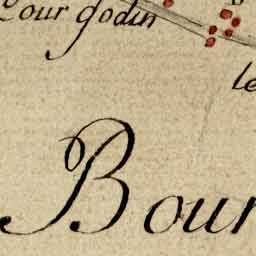 Cour godin
le
Bour